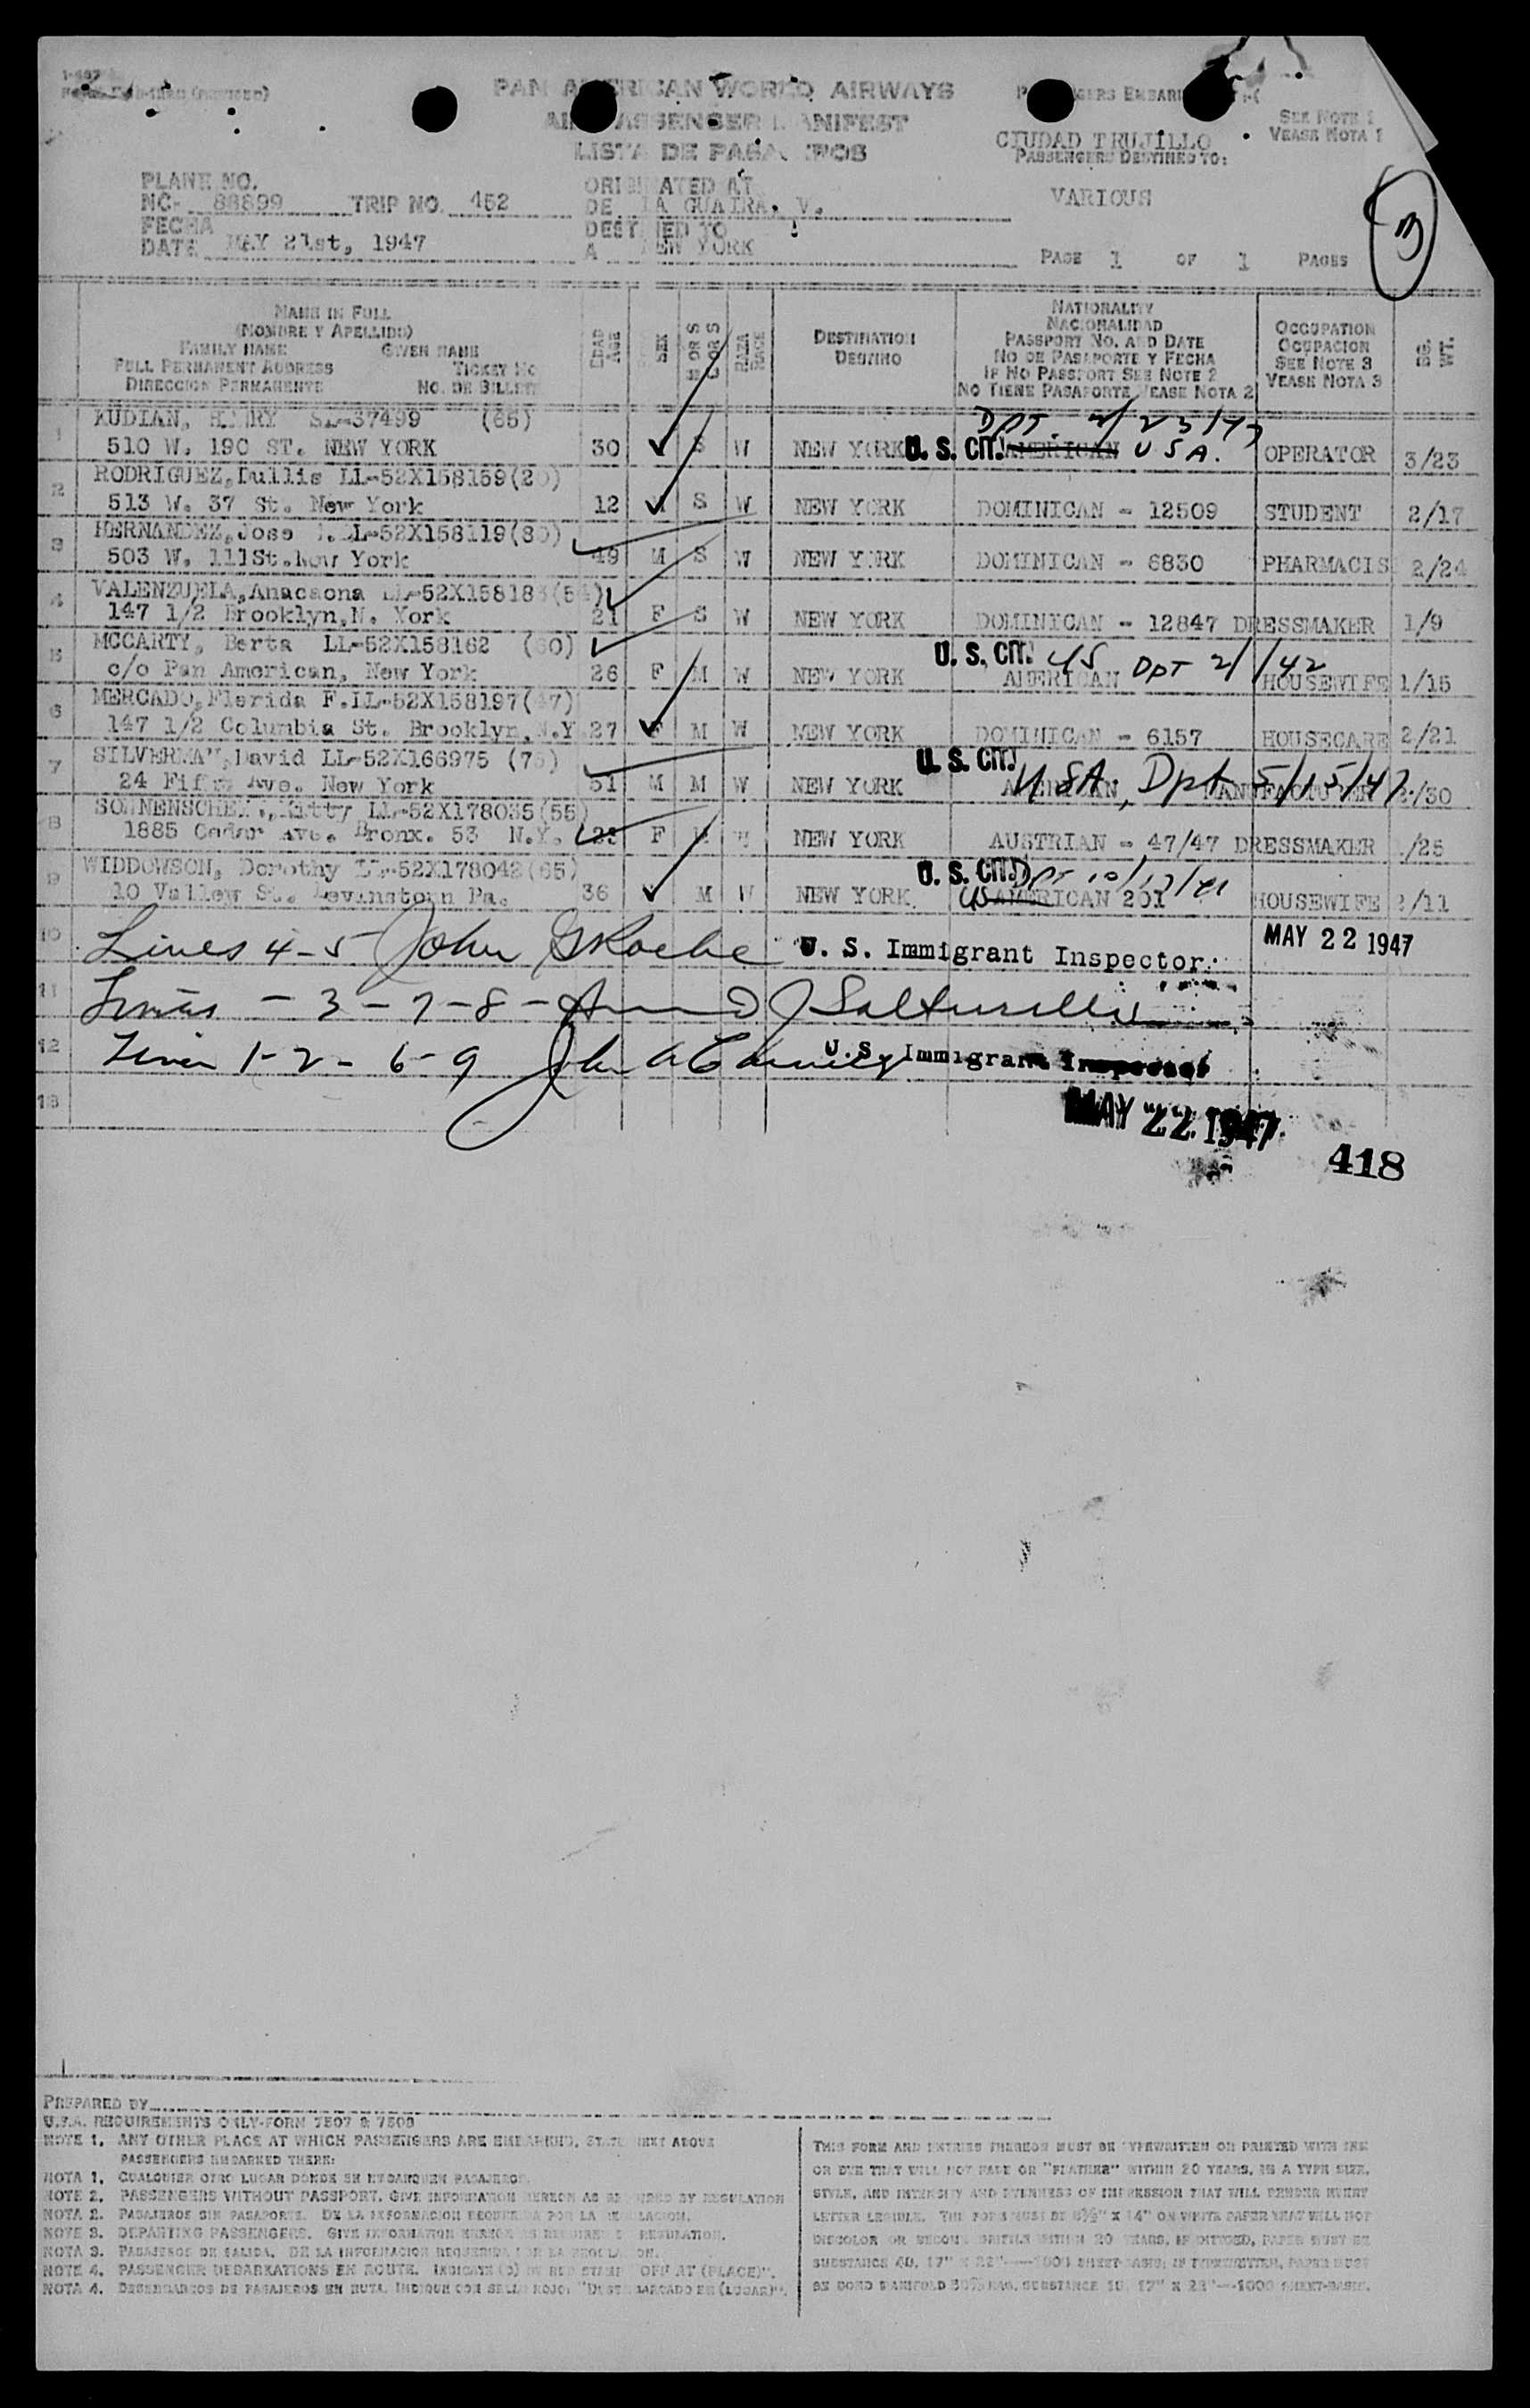 PAN AMERICAN WORLD AIRWAYS
AIR PASSENGER MANIFEST
LISTA DE PASAJEROS
PASSENGERS EMBARKED
CIUDAD TRUJILLO
SEE NOTE 1
VEASE NOTA 1
PASSENGERS DESTINED TO:
VARIOUS
3
PLANE NO.
NC- 88899 TRIP NO. 452
FECHA
DATE MAY 21st, 1947
ORIGINATED AT
DE LA GUAIRA, V.
DESTINED TO
A NEW YORK
PAGE 1 OF 1 PAGES
NAME IN FULL
(NOMBRE Y APELLIDO)
FAMILY NAME GIVEN NAME
FULL PERMANENT ADDRESS TICKET NO
DIRECCION PERMANENTE NO. DE BILLETE
EDAD AGE
SEX
RAZA RACE
DESTINATION
DESTINO
NATIONALITY
NACIONALIDAD
PASSPORT NO. AND DATE
NO DE PASAPORTE Y FECHA
IF NO PASSPORT SEE NOTE 2
NO TIENE PASAPORTE VEASE NOTA 2
OCCUPATION
OCUPACION
SEE NOTE 3
VEASE NOTA 3
1 KUDIAN, HENRY 37499 (65) DPT. 2/23/47
510 W. 190 ST. NEW YORK 30 S W NEW YORK U. S. CIT. AMERICAN USA. OPERATOR 3/23
2 RODRIGUEZ, LL-52X158159
513 W. 37 St. New York 12 M S W NEW YORK DOMINICAN - 12509 STUDENT 2/17
3 HERNANDEZ, Jose LL-52X158119
503 W. 111St. New York 49 M S W NEW YORK DOMINICAN - 6830 PHARMACIS 2/24
4 VALENZUELA, Anacaona
147 1/2 Brooklyn, N. York 21 F S W NEW YORK DOMINICAN - 12847 DRESSMAKER 1/9
5 MCCARTY, Berta LL-52X158162 U. S. CIT. US DPT
c/o Pan American, New York 26 F M W NEW YORK AMERICAN HOUSEWIFE 1/15
6 MERCADO, Florida F. LL-52X158197
147 1/2 Columbia St. Brooklyn, N.Y 27 F M W NEW YORK DOMINICAN - 6157 HOUSECARE 2/21
7 SILVERMAN, David LL-52X166975 U. S. CIT. USA, Dpt 5/15/47.
24 Fifth Ave. New York 51 M M W NEW YORK AMERICAN MANUFACTURER
8 SONNENSCHEIN, Kitty LL-52X178035(55)
1885 Cedar Ave. Bronx. 53 N.Y. F W NEW YORK AUSTRIAN - 47/47 DRESSMAKER /25
9 WIDDOWSON, Dorothy LL-52X178042(65) U. S. CIT. DPT
Pa. 36 M W NEW YORK. US AMERICAN 201 HOUSEWIFE /11
10 Lines 4-5 John U. S. Immigrant Inspector. MAY 22 1947
11 Lines - 3 - 7 - 8 -
12 Lines 1-2 - 6-9 John U.S. Immigrant Inspector
13
MAY 22 1947
418
PREPARED BY
REQUIREMENTS ONLY-FORM 7507 & 7508
NOTE 1. ANY OTHER PLACE AT WHICH PASSENGERS ARE EMBARKED, STATE NEXT ABOVE
PASSENGERS EMBARKED THERE:
NOTA 1. CUALQUIER OTRO LUGAR DONDE SE EMBARQUEN PASAJEROS.
NOTE 2. PASSENGERS WITHOUT PASSPORT. GIVE INFORMATION HEREON AS REQUIRED BY REGULATION
NOTA 2. PASAJEROS SIN PASAPORTE. DE LA INFORMACION REQUERIDA POR LA REGULACION.
NOTE 3. DEPARTING PASSENGERS. GIVE INFORMATION HEREON AS REQUIRED BY REGULATION.
NOTA 3. PASAJEROS DE SALIDA. DE LA INFORMACION REQUERIDA POR LA REGULACION.
NOTE 4. PASSENGER DEBARKATIONS EN ROUTE. INDICATE (O) BY RED STAMP OFF AT (PLACE)".
NOTA 4. DESEMBARCOS DE PASAJEROS EN RUTA. INDIQUE CON SELLO ROJO: "DESEMBARCADO EN (LUGAR)".
THIS FORM AND ENTRIES THEREON MUST BE TYPEWRITTEN OR PRINTED WITH INK
OR DYE THAT WILL NOT FADE OR "FEATHER" WITHIN 20 YEARS, IN A TYPE SIZE,
STYLE, AND INTENSITY AND EVENNESS OF IMPRESSION THAT WILL RENDER EVERY
LETTER LEGIBLE. THE FORM MUST BE 8½" X 14" ON WHITE PAPER THAT WILL NOT
DISCOLOR OR BECOME BRITTLE WITHIN 20 YEARS. IF DITTOED, PAPER MUST BE
SUBSTANCE 40, 17" X 22"---1000 SHEET-BASIS; IF TYPEWRITTEN, PAPER MUST
BE BOND MANIFOLD 50% RAG, SUBSTANCE 10, 17" X 22"---1000 SHEET-BASIS.